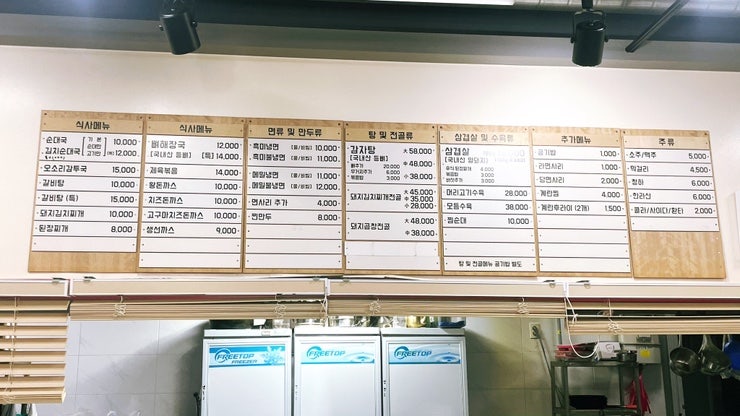 식사메뉴
순대국 기본 10,000
김치순대국 순대만 고기만 (특) 12,000
모소리감투국 15,000
갈비탕 10,000
갈비탕 (특) 15,000
돼지김치찌개 10,000
된장찌개 8,000
식사메뉴
뼈해장국 12,000
[국내산 등뼈] (특) 14,000
제육볶음 14,000
왕돈까스 10,000
치즈돈까스 10,000
고구마치즈돈까스 10,000
생선까스 9,000
면류 및 만두류
흑미냉면 [물/비빔] 10,000
흑미불냉면 [물/비빔] 11,000
메밀냉면 [물/비빔] 11,000
메밀불냉면 [물/비빔] 12,000
면사리 추가 4,000
찐만두 8,000
탕 및 전골류
감자탕 大 58,000
[국내산 등뼈] 中 48,000
뼈추가 20,000
우거지추가 3,000
볶음밥 3,000
小 38,000
돼지김치찌개전골 大 45,000
中 35,000
小 28,000
돼지곱창전골 大 48,000
中 38,000
삼겹살 및 수육류
삼겹살
[국내산 암돼지]
4,000
볶음밥 3,000
버섯추가 3,000
머리고기수육 28,000
모듬수육 38,000
찜순대 10,000
탕 및 전골메뉴 공기밥 별도
추가메뉴
공기밥 1,000
라면사리 1,000
당면사리 2,000
계란찜 4,000
계란후라이 (2개) 1,500
주류
소주/맥주 5,000
막걸리 4,500
청하 6,000
한라산 6,000
콜라/사이다/환타 2,000
FREETOP
FREEZER
FREETOP
FREETOP